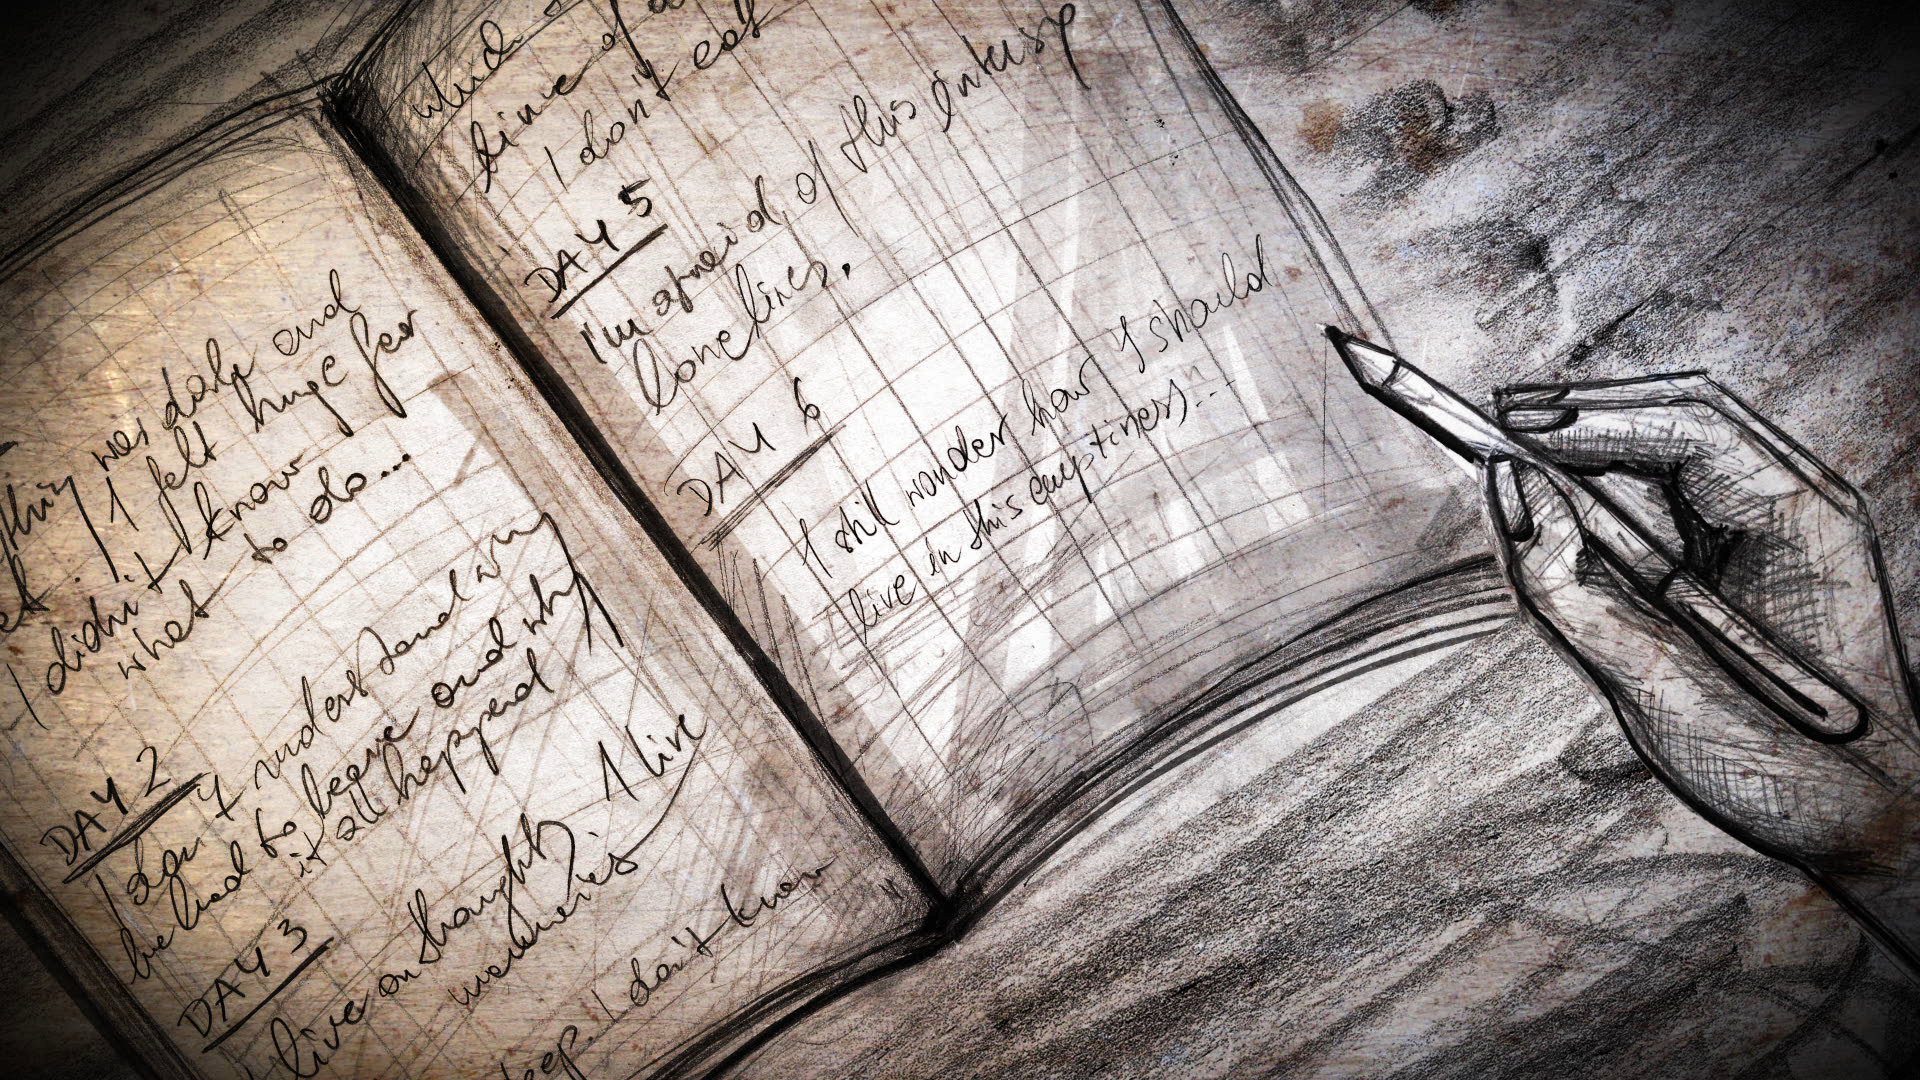 was dark and
I felt huge fear
I didn't know
what to do...
DAY 2
understand why
he had to leave and why
it all happend
DAY 3
I live
live on thought
memories
I don't know
time of
I don't eat
DAY 5
I'm afraid of this
loneliness.
DAY 6
I still wonder how I should
live in this emptiness...